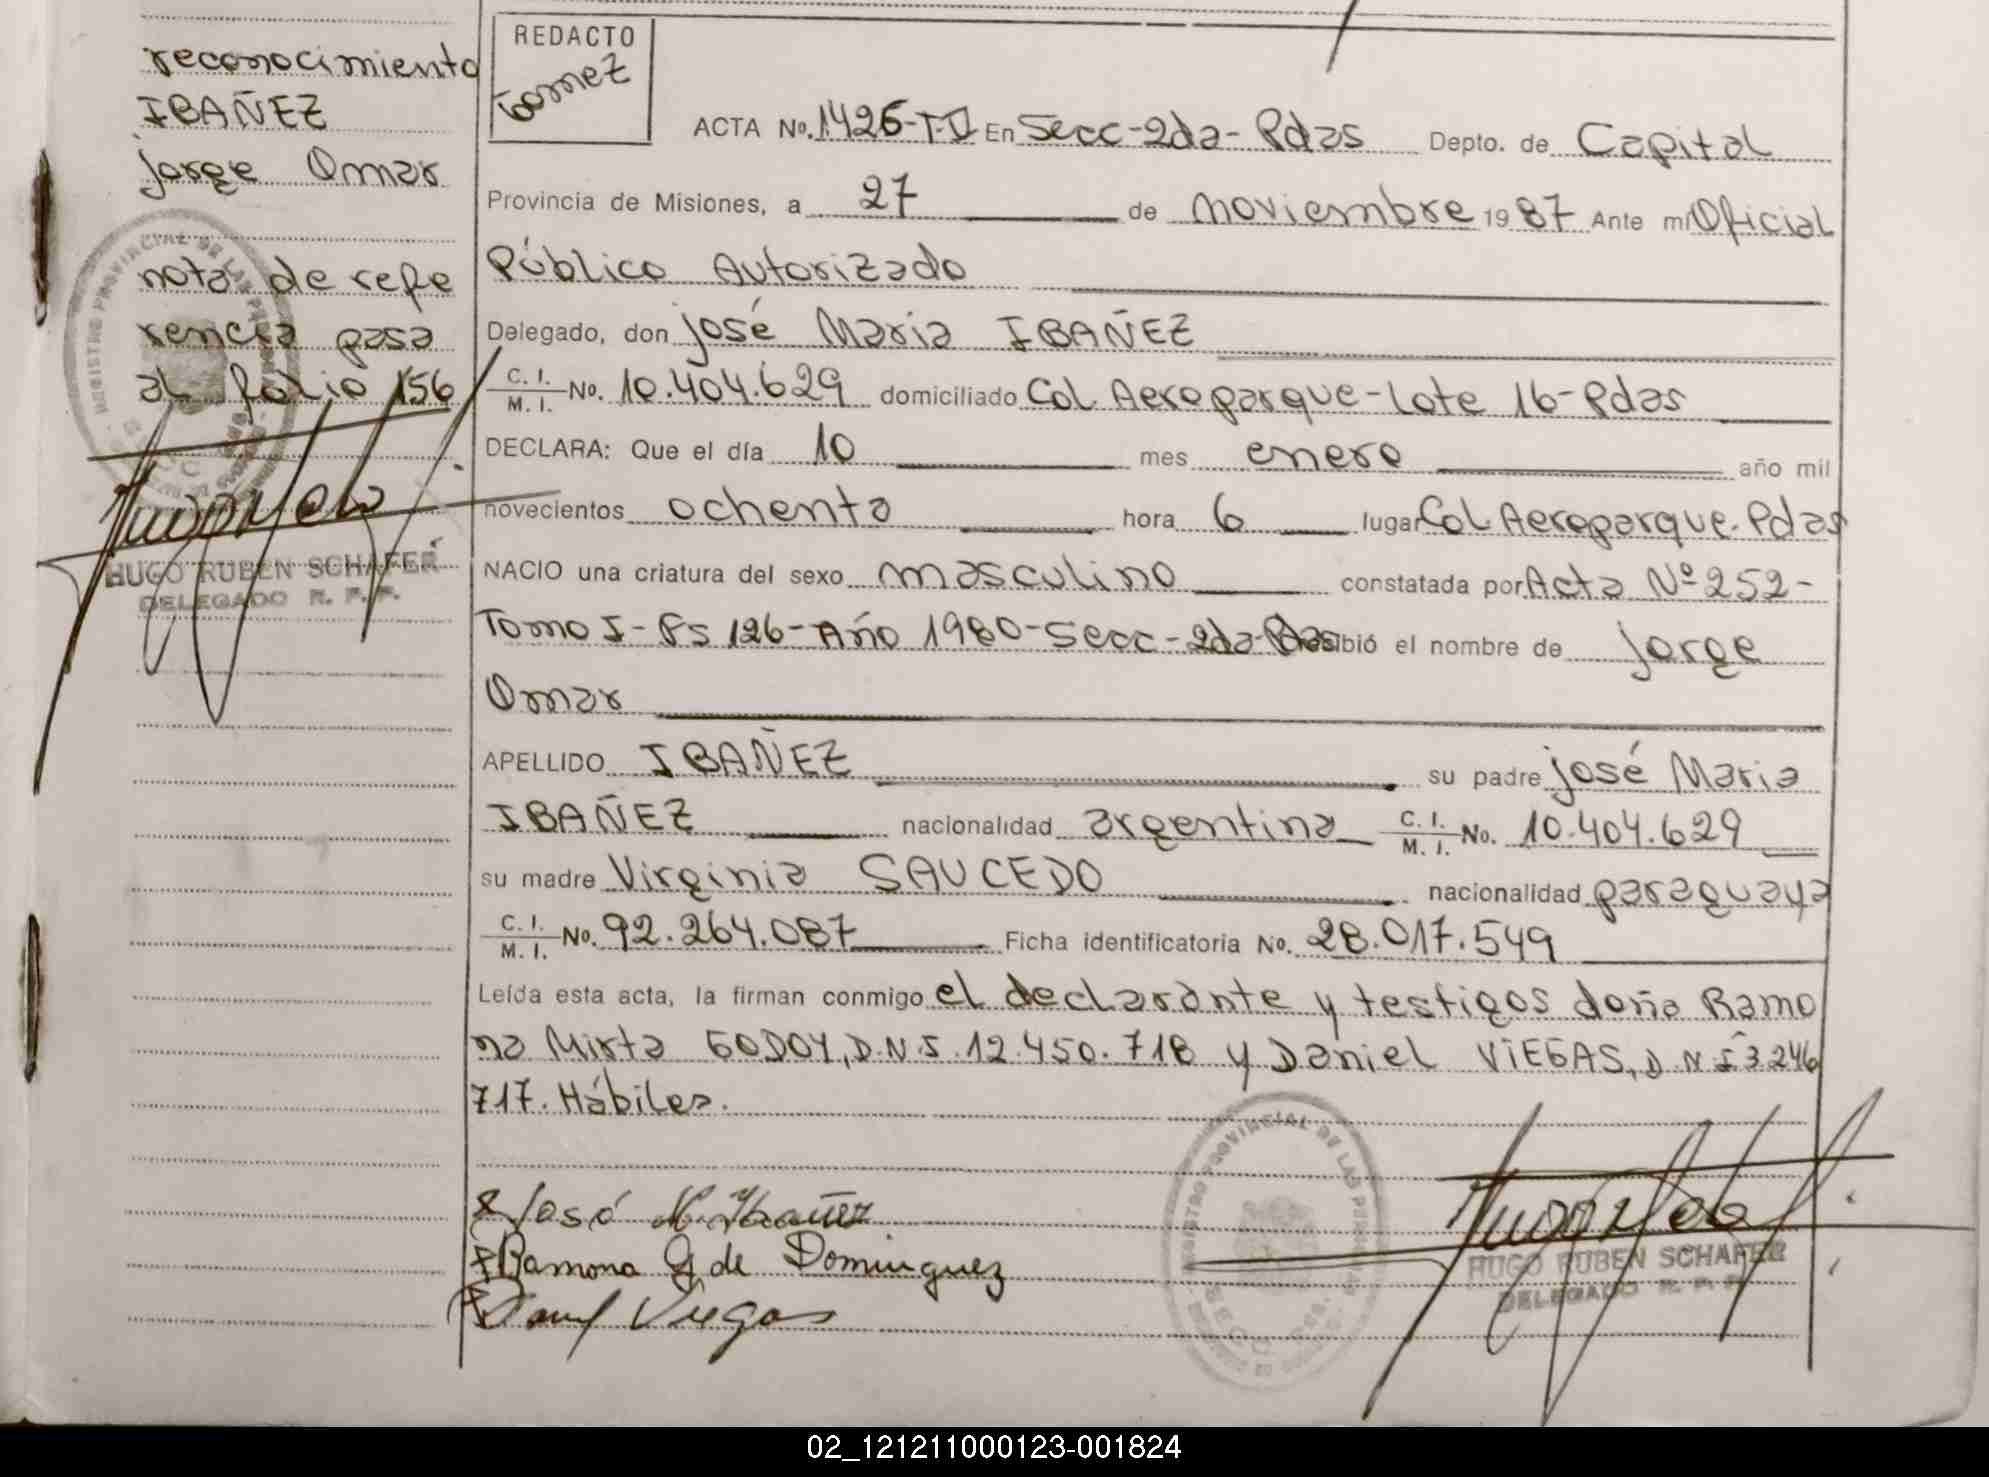 reconocimiento
IBAÑEZ
jorge Omar
nota de refe
rencia pasa
al folio 156
HUGO RUBEN SCHAFER
DELEGADO R. P. P.
REDACTO
Gomez
ACTA No. 1426-T-V En Secc-2da-Pdas Depto. de Capital
Provincia de Misiones, a 27 de noviembre 1987 Ante mi Oficial
Público Autorizado
Delegado, don josé Maria IBAÑEZ
C. I. / M. I. No. 10.404.629 domiciliado Col Aeroparque-Lote 16-Pdas
DECLARA: Que el día 10 mes enero año mil
novecientos ochenta hora 6 lugar Col Aeroparque. Pdas
NACIO una criatura del sexo masculino constatada por Acta Nº 252-
Tomo I-Fs 126-Año 1980-Secc-2da-Pdas recibió el nombre de jorge
Omar
APELLIDO IBAÑEZ su padre josé Maria
IBAÑEZ nacionalidad argentina C. I. / M. I. No. 10.404.629
su madre Virginia SAUCEDO nacionalidad paraguaya
C. I. / M. I. No. 92.264.087 Ficha identificatoria No. 28.017.549
Leída esta acta, la firman conmigo el declarante y testigos doña Ramo
na Mirta GODOY, D.N.I. 12.450.718 y Daniel VIEGAS, D.N.I 3.246
717. Hábiles.
José M. Ibañez
Ramona G de Dominguez
Daniel Viegas
HUGO RUBEN SCHAFER
DELEGADO R. P. P.
02_121211000123-001824